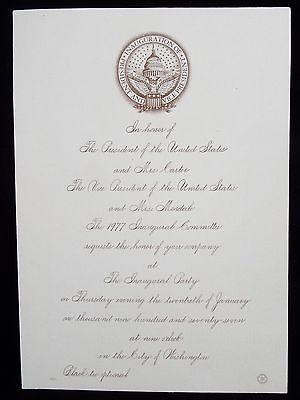 INAUGURATION OF PRESIDENT AND VICE PRESIDENT
In honor of
The President of the United States
and Mrs. Carter
The Vice President of the United States
and Mrs. Mondale
The 1977 Inaugural Committee
requests the honor of your company
at
The Inaugural Party
on Thursday evening the twentieth of January
one thousand nine hundred and seventy-seven
at nine o'clock
in the City of Washington
Black tie optional